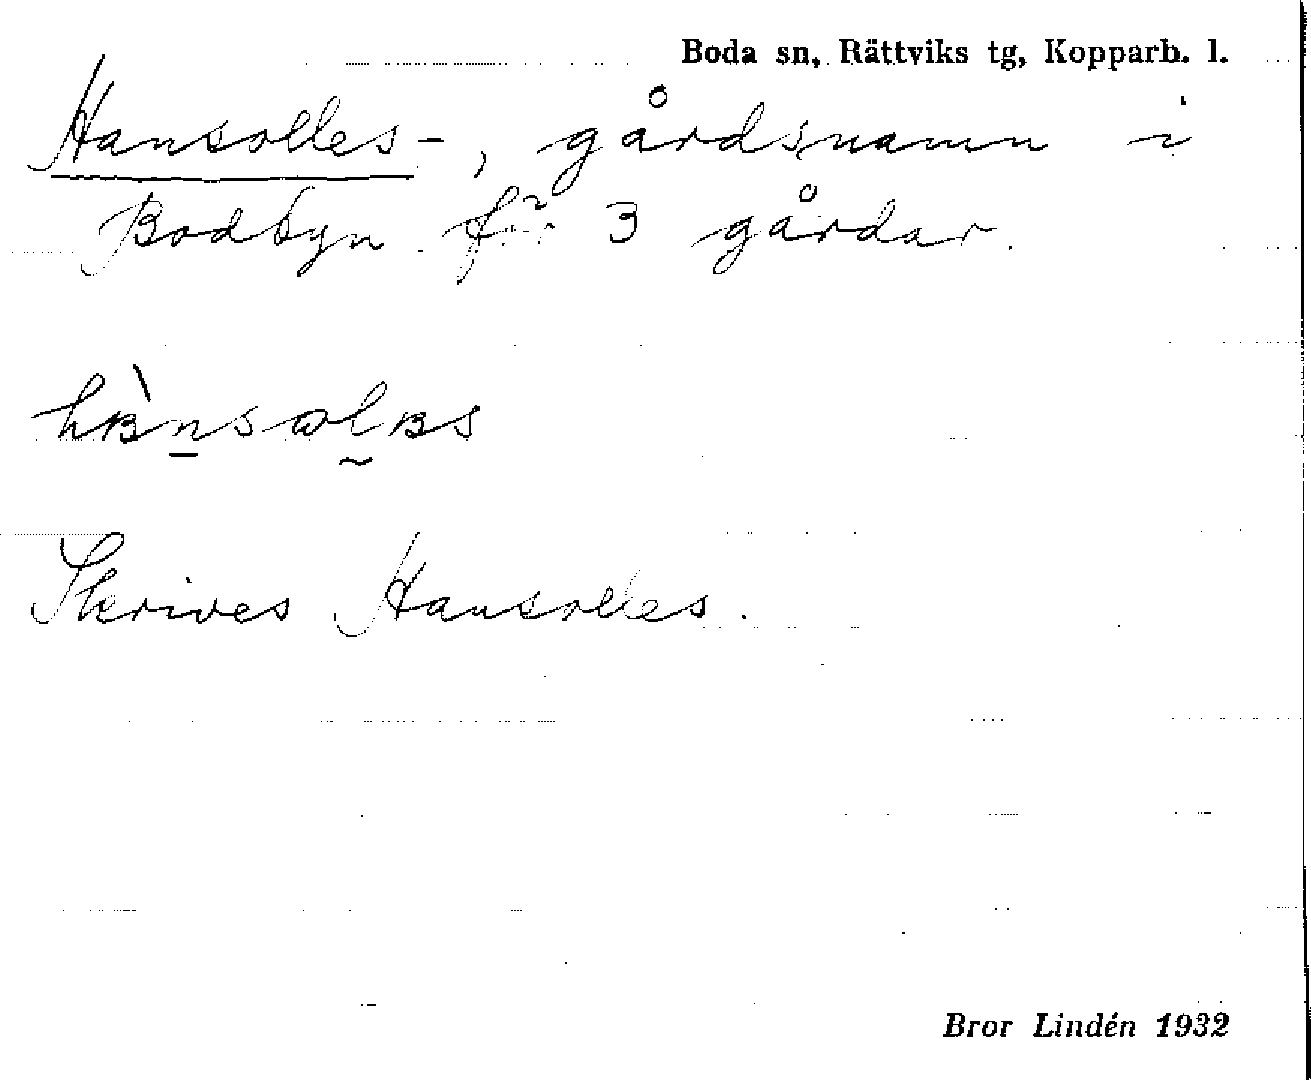 Boda sn, Rättviks tg, Kopparb. l.
Hansolles-, gårdsnamn i
Bodbyn för 3 gårdar.
Skrives Hansolles.
Bror Lindén 1932